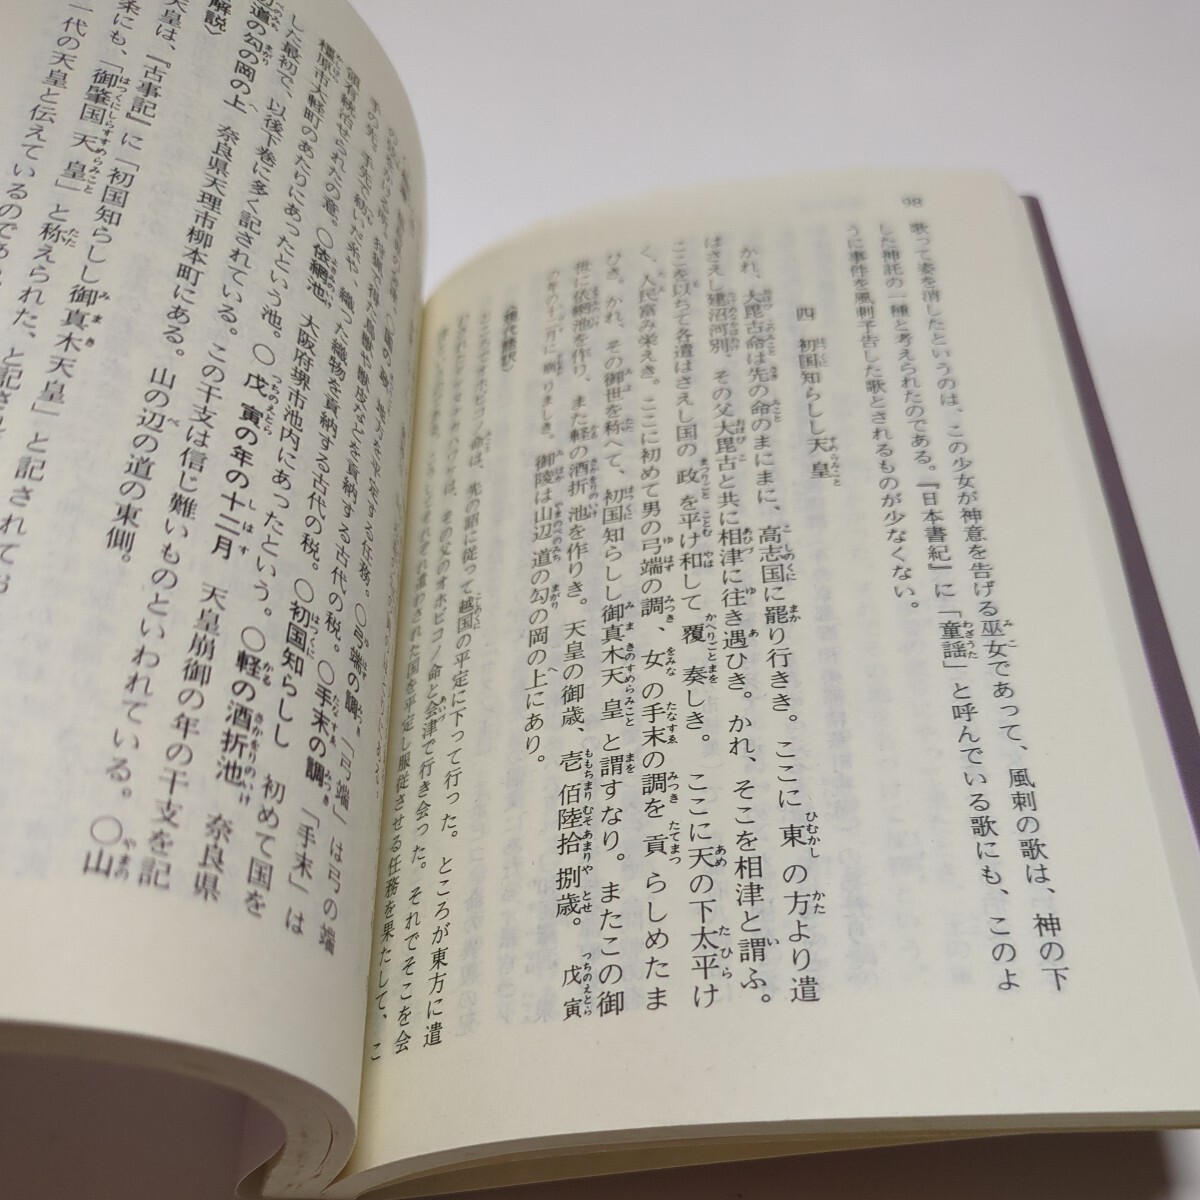 歌って姿を消したというのは、この少女が神意を告げる巫女であって、風刺の歌は、神の下
した神託の一種と考えられたのである。『日本書紀』に「童謡」と呼んでいる歌にも、このよ
うに事件を風刺予告した歌とされるものが少なくない。
四　初国知らしし天皇
かれ、大毘古命は先の命のまにまに、高志国に罷り行きき。ここに東の方より遣
はさえし建沼河別、その父大毘古と共に相津に往き遇ひき。かれ、そこを相津と謂ふ。
ここを以ちて各遣はさえし国の政を平け和して覆奏しき。ここに天の下太平け
く、人民富み栄えき。ここに初めて男の弓端の調、女の手末の調を貢らしめたま
ひき。かれ、その御世を称へて、初国知らしし御真木天皇と謂すなり。またこの御
世に依網池を作り、また軽の酒折池を作りき。天皇の御歳、壱佰陸拾捌歳。戊寅
の年の十二月に崩りましき。御陵は山辺道の勾の岡の上にあり。
〈現代語訳〉
ところでオホビコノ命は、先の詔に従って越国の平定に下って行った。ところが東方に遣
その父のオホビコノ命と会津で行き会った。それでそこを会
それぞれ遣わされた国を平定し服従させる任務を果たして、こ
地方を平定する任務。○弓端の調　「弓端」は弓の端
狩猟で得た鳥獣や獣皮などを貢納する古代の税。○手末の調　「手末」は
手の先。手先で紡いだ糸や、織った織物を貢納する古代の税。○初国知らしし　初めて国を
領有統治せられたの意。○依網池　大阪府堺市池内にあったという池。○軽の酒折池　奈良県
橿原市大軽町のあたりにあったという池。○戊寅の年の十二月　天皇崩御の年の干支を記
した最初で、以後下巻に多く記されている。この干支は信じ難いものといわれている。○山
道の勾の岡の上　奈良県天理市柳本町にある。山の辺の道の東側。
解説〉
天皇は、『古事記』に「初国知らしし御真木天皇」と記されてお
条にも、「御肇国天皇」と称えられた、と記され
一代の天皇と伝えているのであ